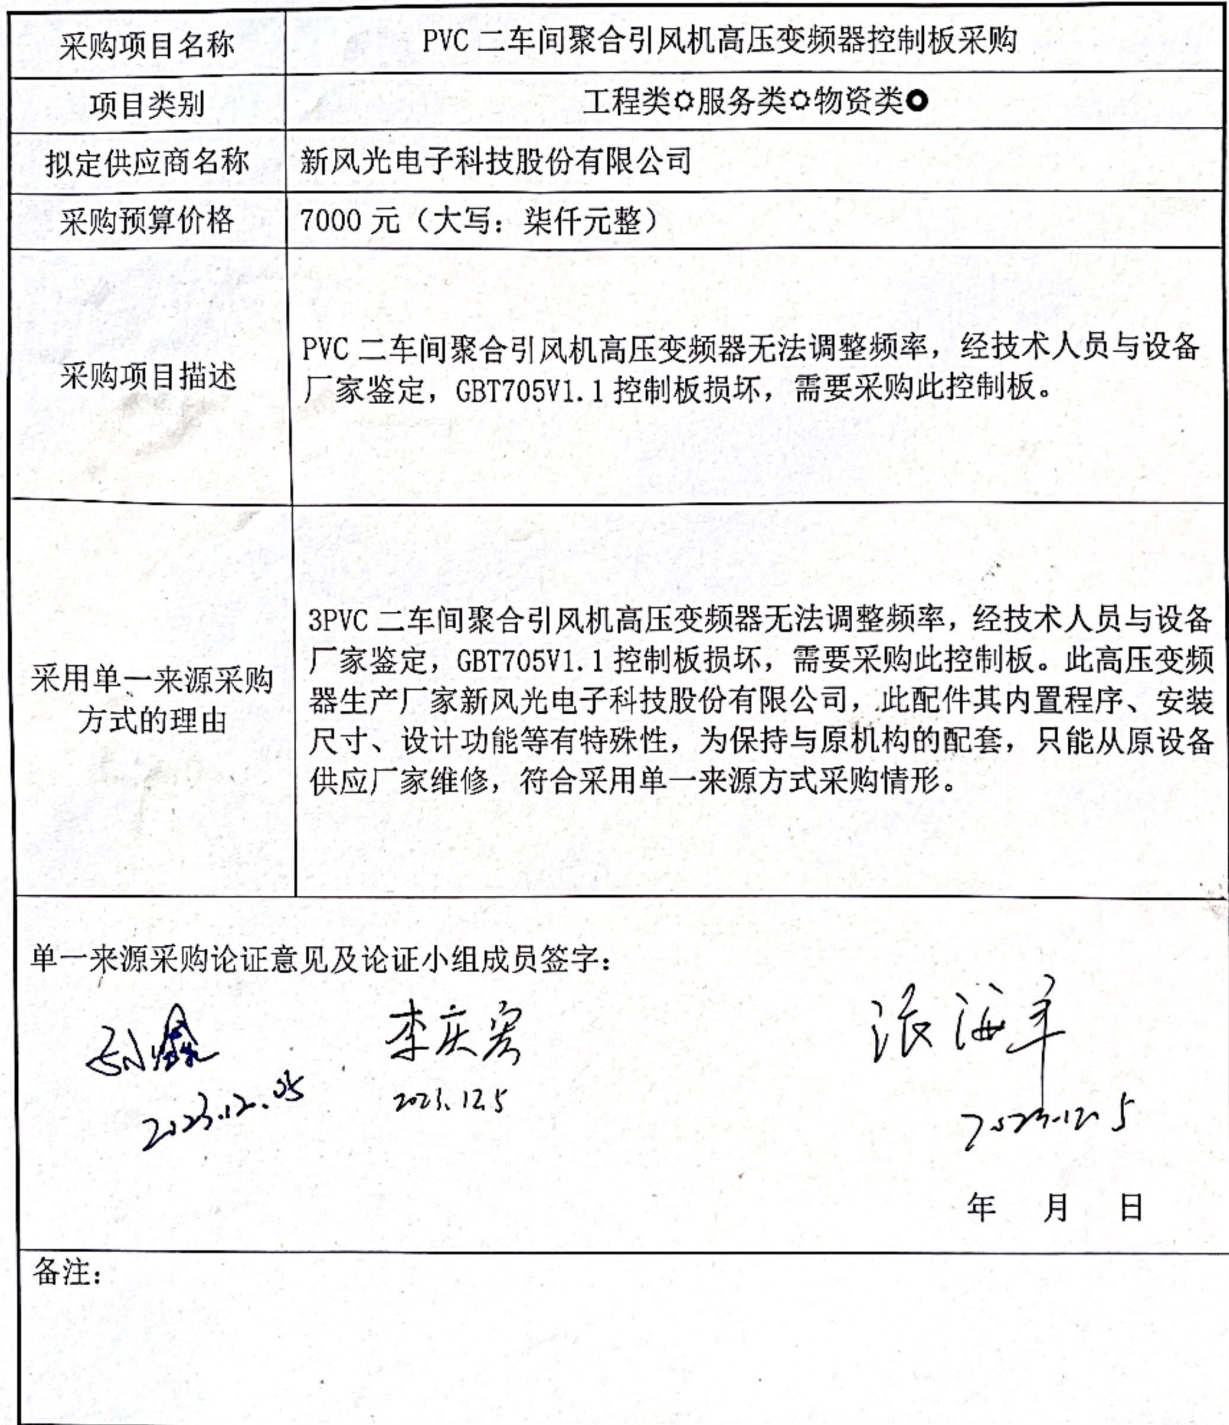 采购项目名称
PVC 二车间聚合引风机高压变频器控制板采购
项目类别
工程类✩服务类✩物资类○
拟定供应商名称
新风光电子科技股份有限公司
采购预算价格
7000 元（大写：柒仟元整）
采购项目描述
PVC 二车间聚合引风机高压变频器无法调整频率，经技术人员与设备
厂家鉴定，GBT705V1.1 控制板损坏，需要采购此控制板。
采用单一来源采购
方式的理由
3PVC 二车间聚合引风机高压变频器无法调整频率，经技术人员与设备
厂家鉴定，GBT705V1.1 控制板损坏，需要采购此控制板。此高压变频
器生产厂家新风光电子科技股份有限公司，此配件其内置程序、安装
尺寸、设计功能等有特殊性，为保持与原机构的配套，只能从原设备
供应厂家维修，符合采用单一来源方式采购情形。
单一来源采购论证意见及论证小组成员签字：
孙鑫
李庆
张海军
2023.12.05
2023.12.5
2023.12.5
年 月 日
备注：